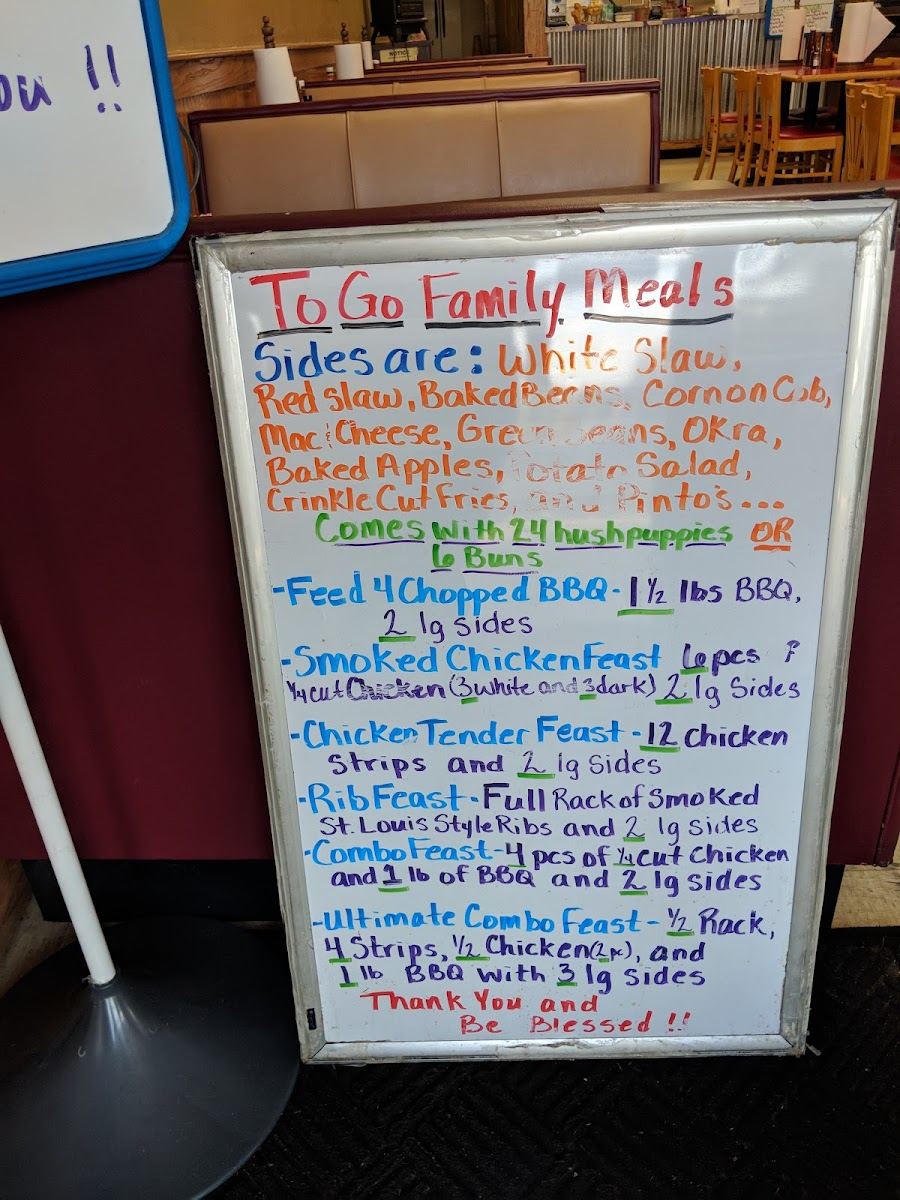 ou !!
NOTICE
To Go Family Meals
Sides are: White Slaw,
Red Slaw, Baked Beans, Corn on Cob,
Mac & Cheese, Green Beans, Okra,
Baked Apples, Potato Salad,
Crinkle Cut Fries, and Pinto's...
Comes with 24 hushpuppies OR
6 Buns
-Feed 4 Chopped BBQ - 1 1/2 lbs BBQ,
2 lg sides
-Smoked Chicken Feast 6 pcs
1/4 cut Chicken (3 white and 3 dark) 2 lg Sides
-Chicken Tender Feast - 12 chicken
Strips and 2 lg sides
-Rib Feast - Full Rack of Smoked
St. Louis Style Ribs and 2 lg sides
-Combo Feast - 4 pcs of 1/4 cut Chicken
and 1 lb of BBQ and 2 lg sides
-Ultimate Combo Feast - 1/2 Rack,
4 Strips, 1/2 Chicken (2pc), and
1 lb BBQ with 3 lg sides
Thank You and
Be Blessed !!